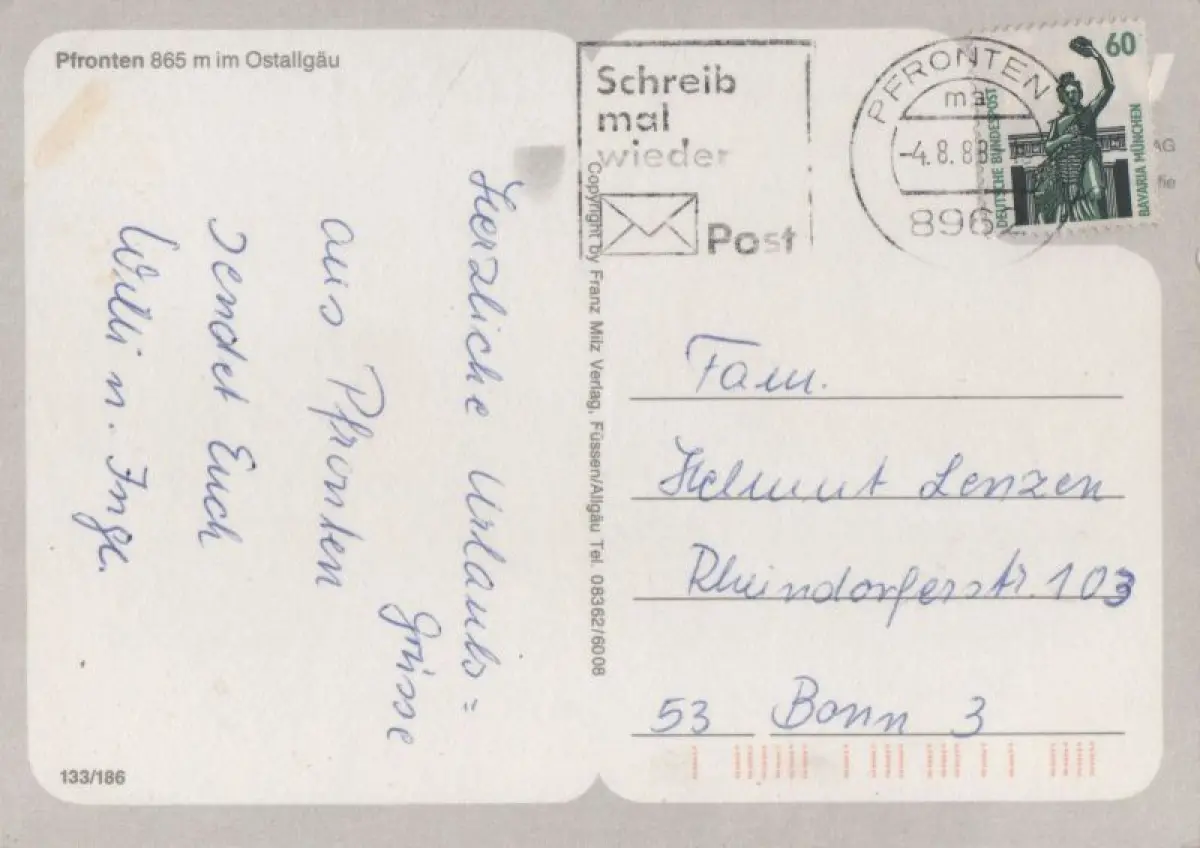 Pfronten 865 m im Ostallgäu
Herzliche Urlaubs=
grüsse
aus Pfronten
sendet Euch
Willi u. Inge.
133/186
Copyright by Franz Milz Verlag, Füssen/Allgäu Tel. 08362/6008
Schreib
mal
wieder
Post
PFRONTEN
-4.8.88
896
60
DEUTSCHE BUNDESPOST
BAVARIA MÜNCHEN
AG
fie
Fam.
Helmut Lenzen
Rheindorferstr. 103
53 Bonn 3